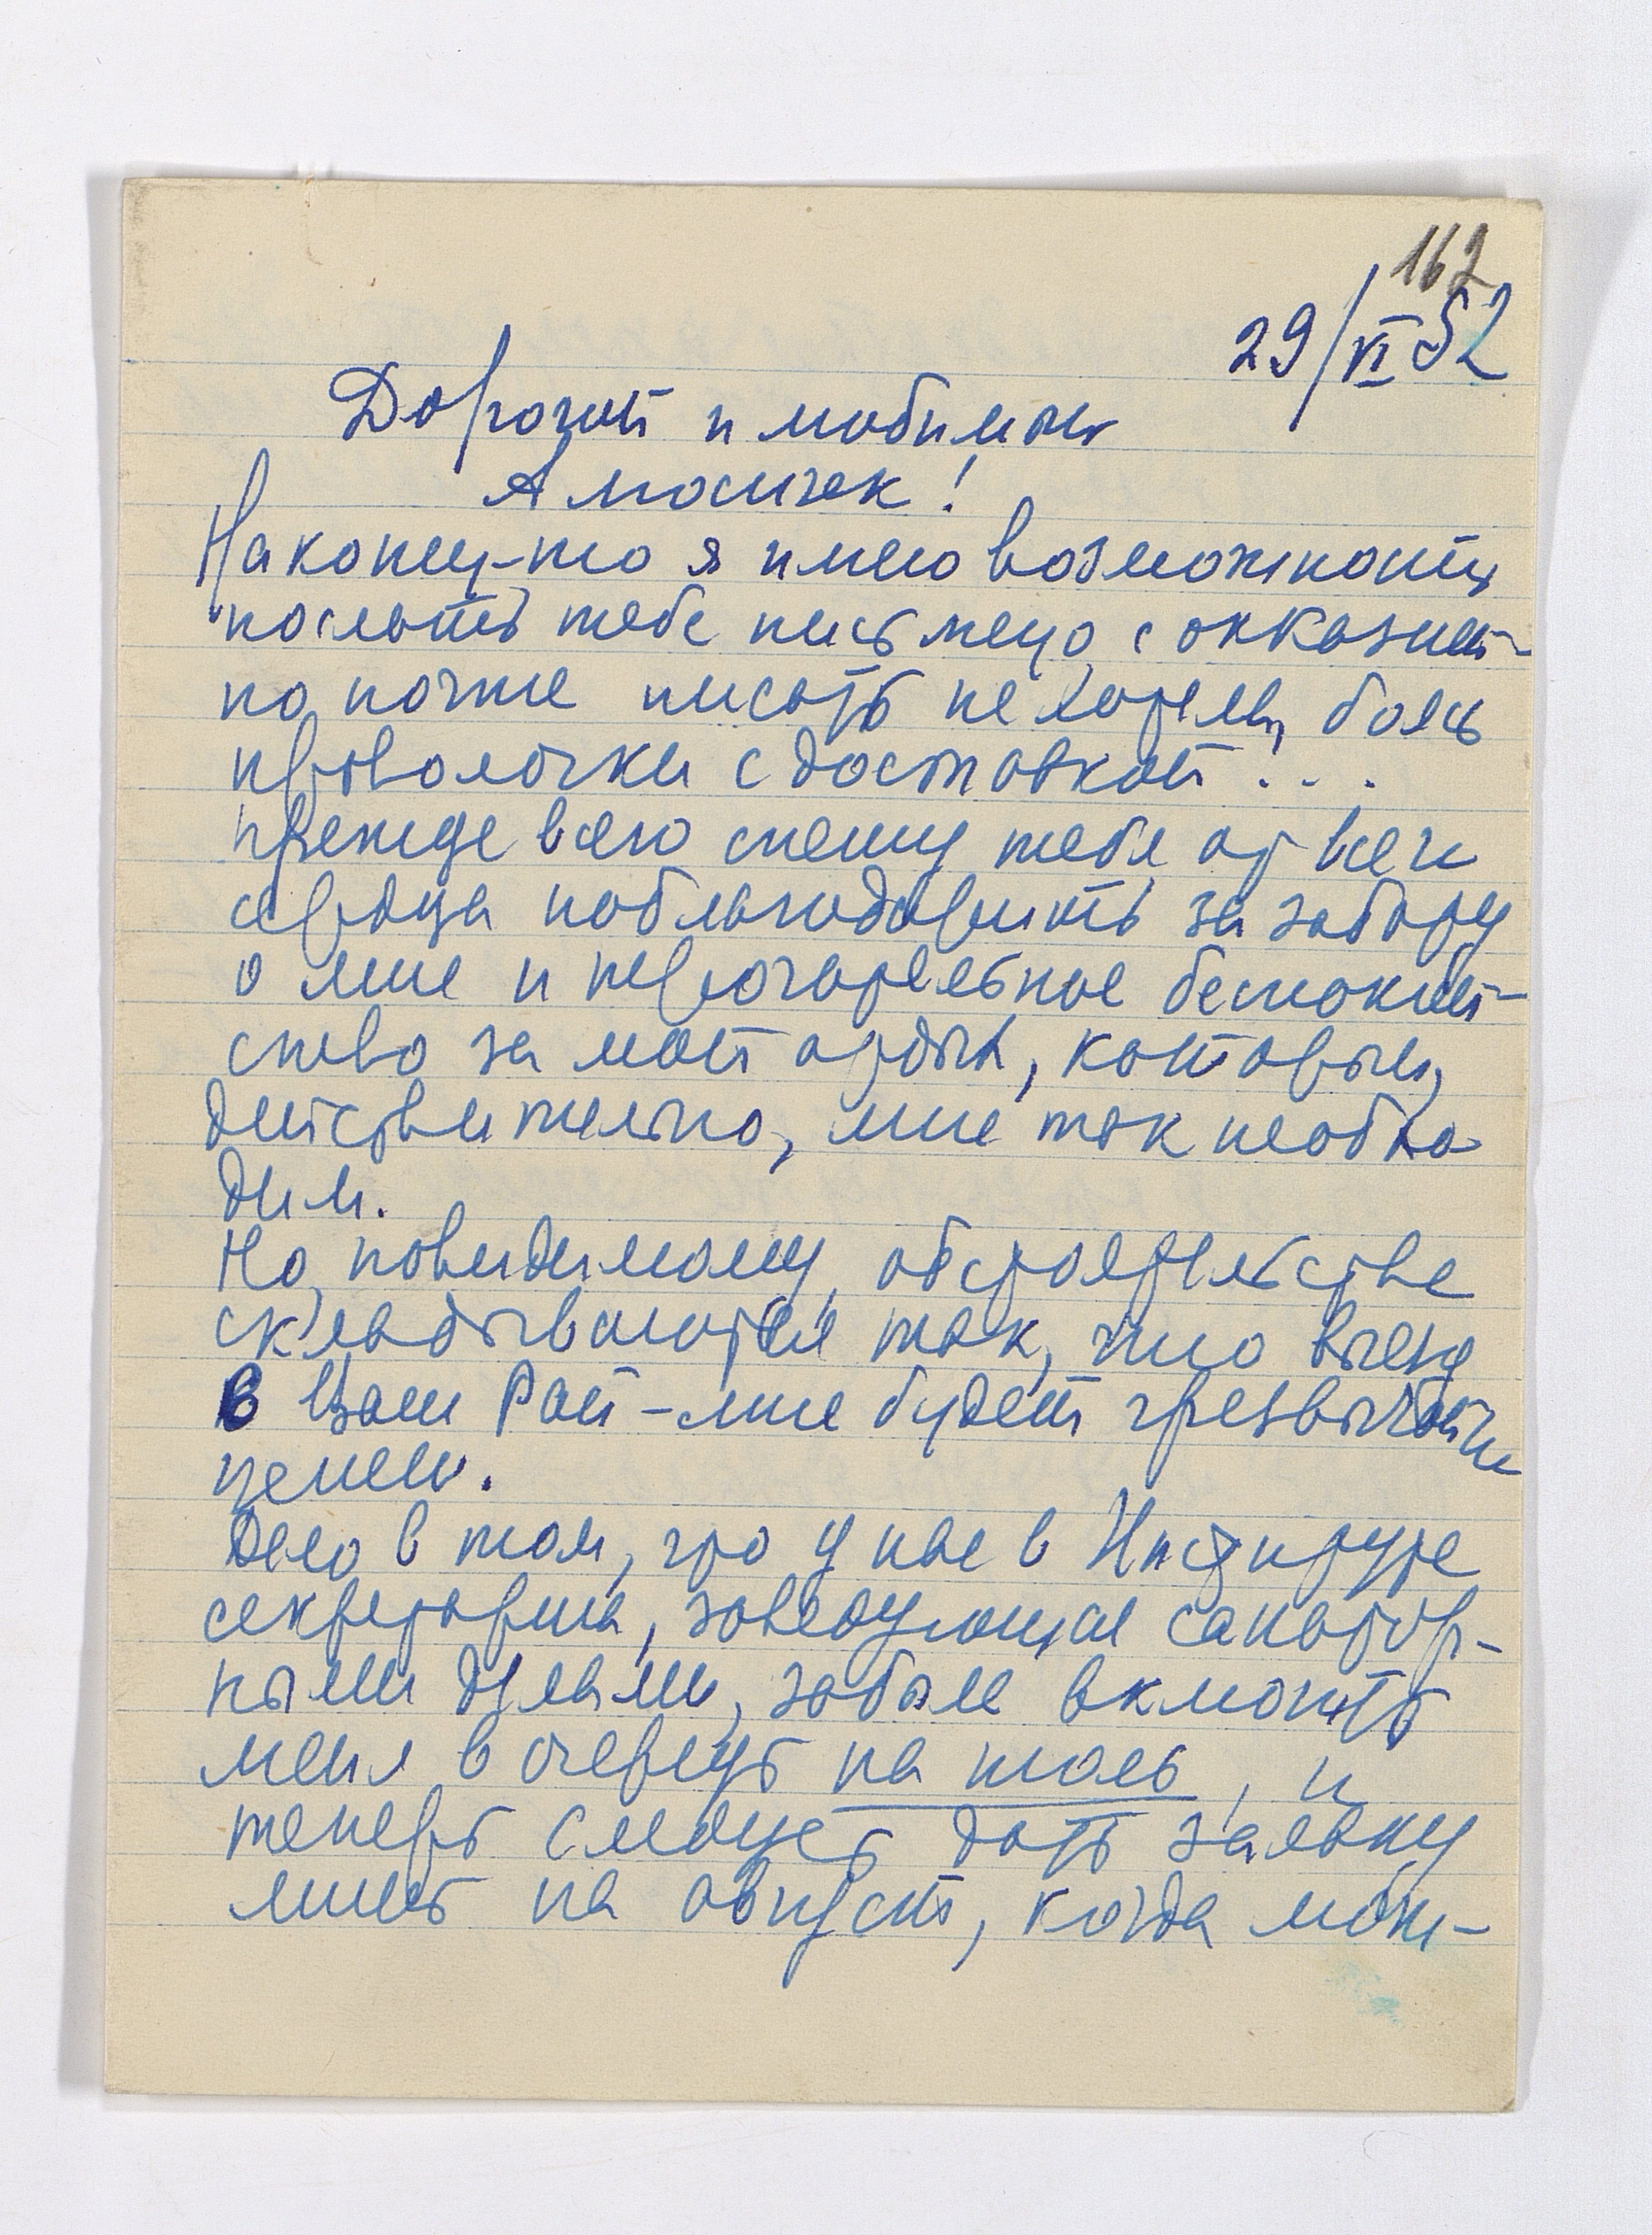 162
29/VI 52
Дорогой и любимый
Амосичек!
Наконец-то я имею возможность
послать тебе письмецо с оккозией
по почте писать не хотела, боясь
проволочки с доставкой...
Прежде всего спешу тебя от всего
сердца поблагодарить за заботу
о мне и первочередное беспокой-
ство за мой отдых, который,
действительно, мне так необхо-
дим.
Но, повидимому, обстоятельства
складываются так, что выезд
в Ваш Рай - мне будет чрезвычайно
ценен.
Дело в том, что у нас в Институте
секретарша, заведующая санатор-
ными делами, забыла включить
меня в очередь на июль, и
теперь следует дать заявку
лишь на август, когда мож-